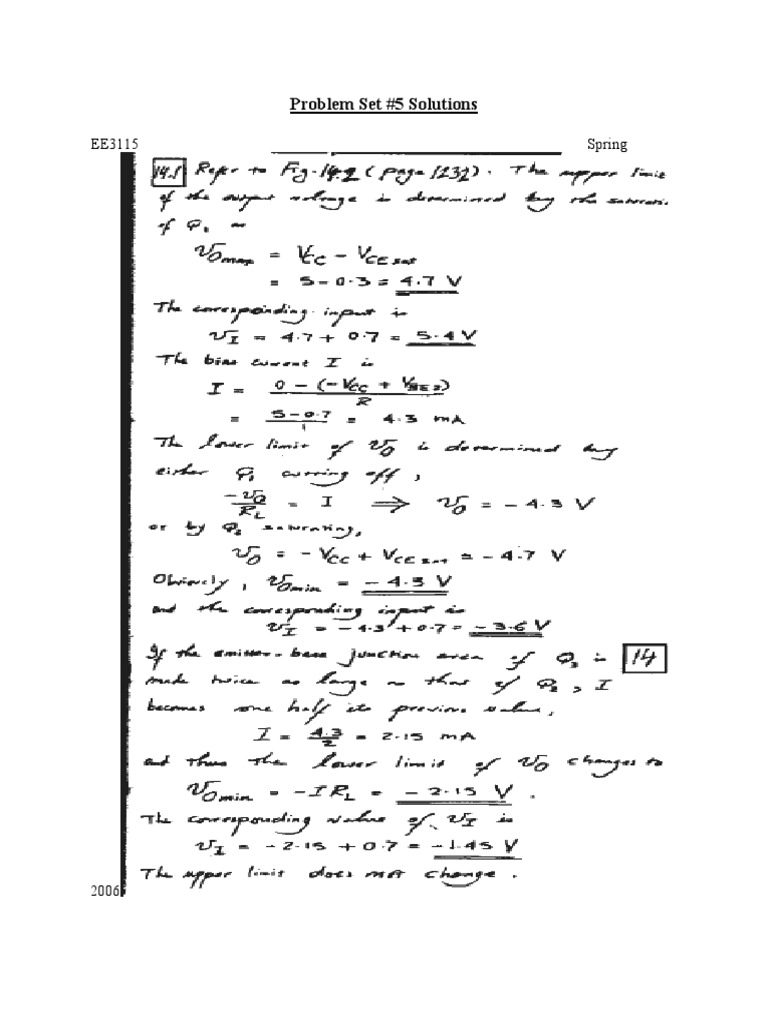 Problem Set #5 Solutions
EE3115 Spring
14.1 Refer to Fig. 14.2 (page 1232). The upper limit
of the output voltage is determined by the saturatio
of Q1 as
v_Omax = V_CC - V_CEsat
= 5 - 0.3 = 4.7 V
The corresponding input is
v_I = 4.7 + 0.7 = 5.4 V
The bias current I is
I = (0 - (-V_CC + V_BE2)) / R
= (5 - 0.7) / 1 = 4.3 mA
The lower limit of v_O is determined by
either Q1 cutting off,
-v_O / R_L = I ⟹ v_O = -4.3 V
or by Q2 saturating,
v_O = -V_CC + V_CEsat = -4.7 V
Obviously, v_Omin = -4.3 V
and the corresponding input is
v_I = -4.3 + 0.7 = -3.6 V
If the emitter-base junction area of Q3 is 14
made twice as large as that of Q2, I
becomes one half its previous value,
I = 4.3 / 2 = 2.15 mA
and thus the lower limit of v_O changes to
v_Omin = -I R_L = -2.15 V.
The corresponding value of v_I is
v_I = -2.15 + 0.7 = -1.45 V
The upper limit does not change.
2006